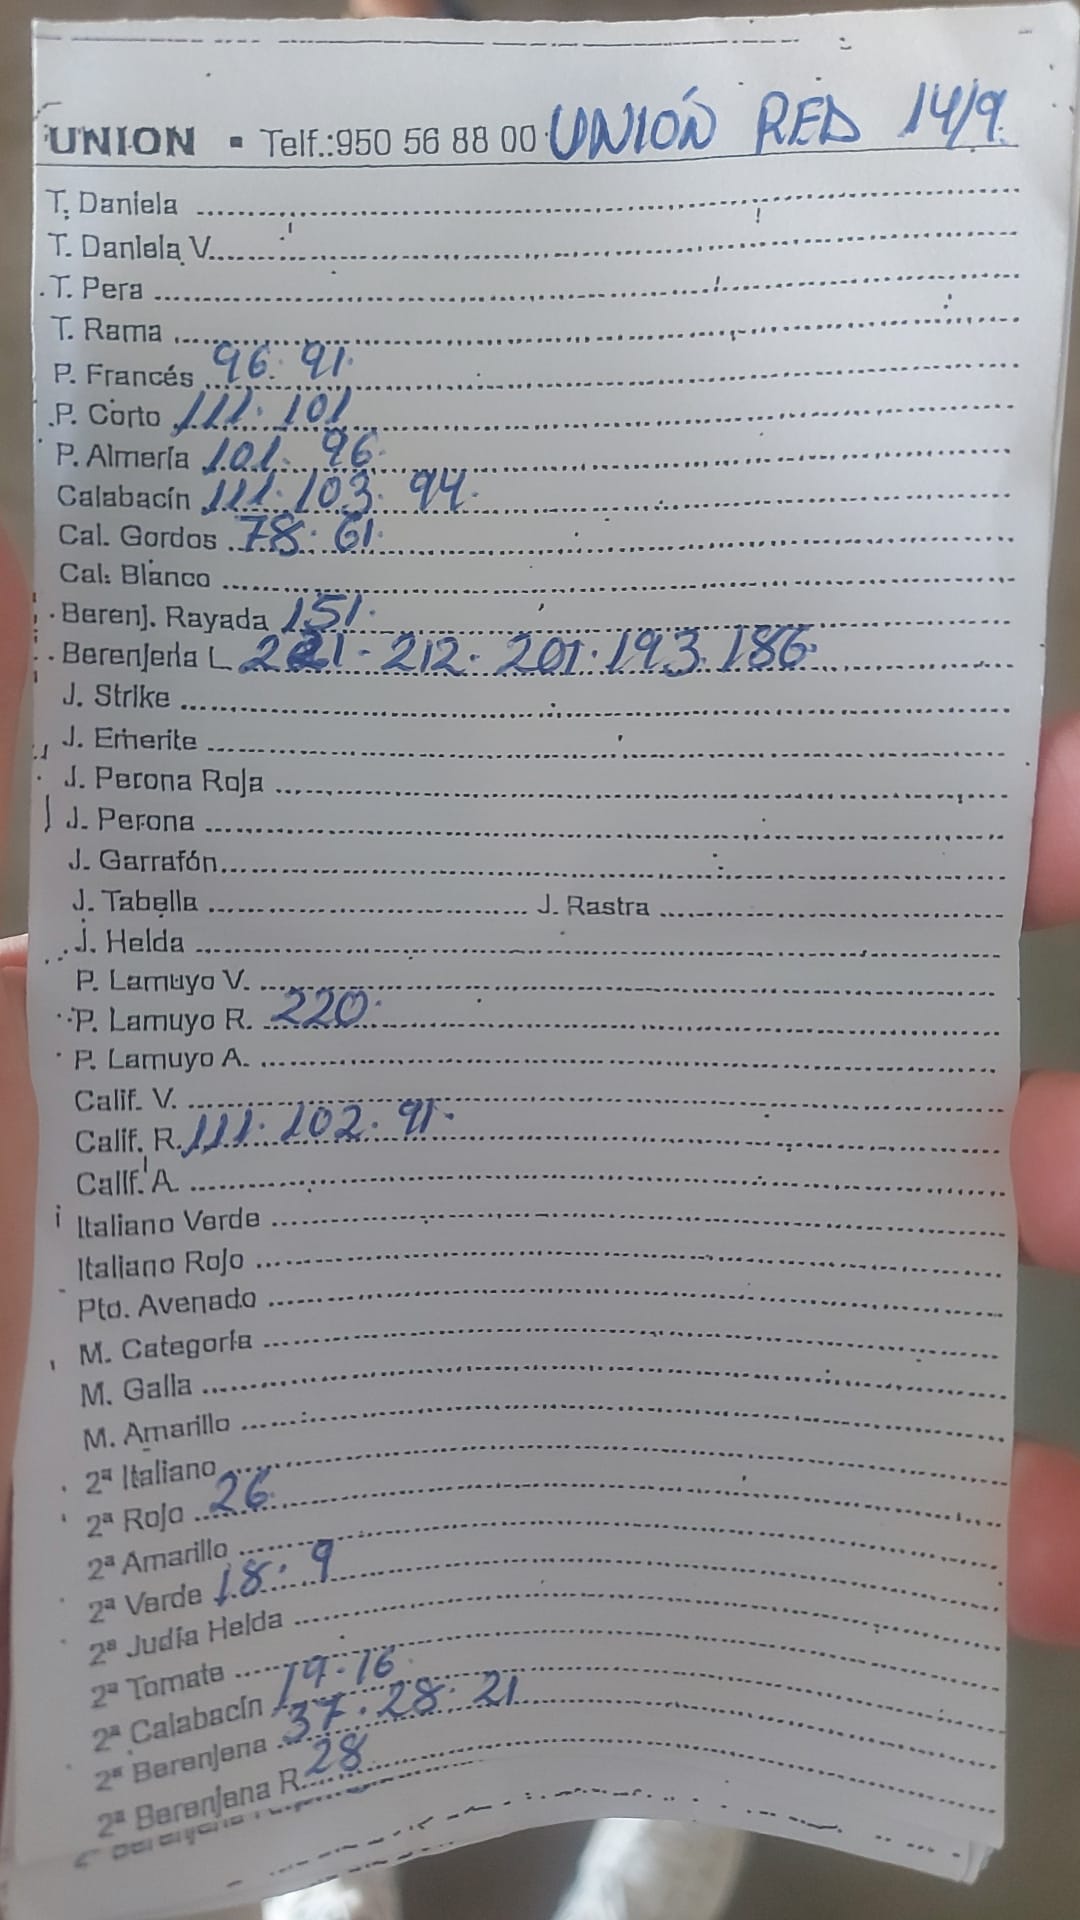 UNION ▪ Telf.:950 56 88 00 UNIÓN RED 14/9.
T. Daniela
T. Daniela V.
T. Pera
T. Rama
P. Francés 96. 91.
P. Corto 111. 101
P. Almería 101. 96.
Calabacín 111. 103. 94.
Cal. Gordos 78. 61.
Cal. Blanco
Berenj. Rayada 151.
Berenjena L 221 - 212. 201. 193. 186.
J. Strike
J. Emerite
J. Perona Roja
J. Perona
J. Garrafón
J. Tabella J. Rastra
J. Helda
P. Lamuyo V.
P. Lamuyo R. 220.
P. Lamuyo A.
Calif. V.
Calif. R. 111. 102. 91.
Calif. A.
Italiano Verde
Italiano Rojo
Pto. Avenado
M. Categoría
M. Galla
M. Amarillo
2ª Italiano
2ª Rojo 26.
2ª Amarillo
2ª Verde 18. 9
2ª Judía Helda
2ª Tomate
2ª Calabacín 19. 16.
2ª Berenjena 37. 28. 21
2ª Berenjena R. 28